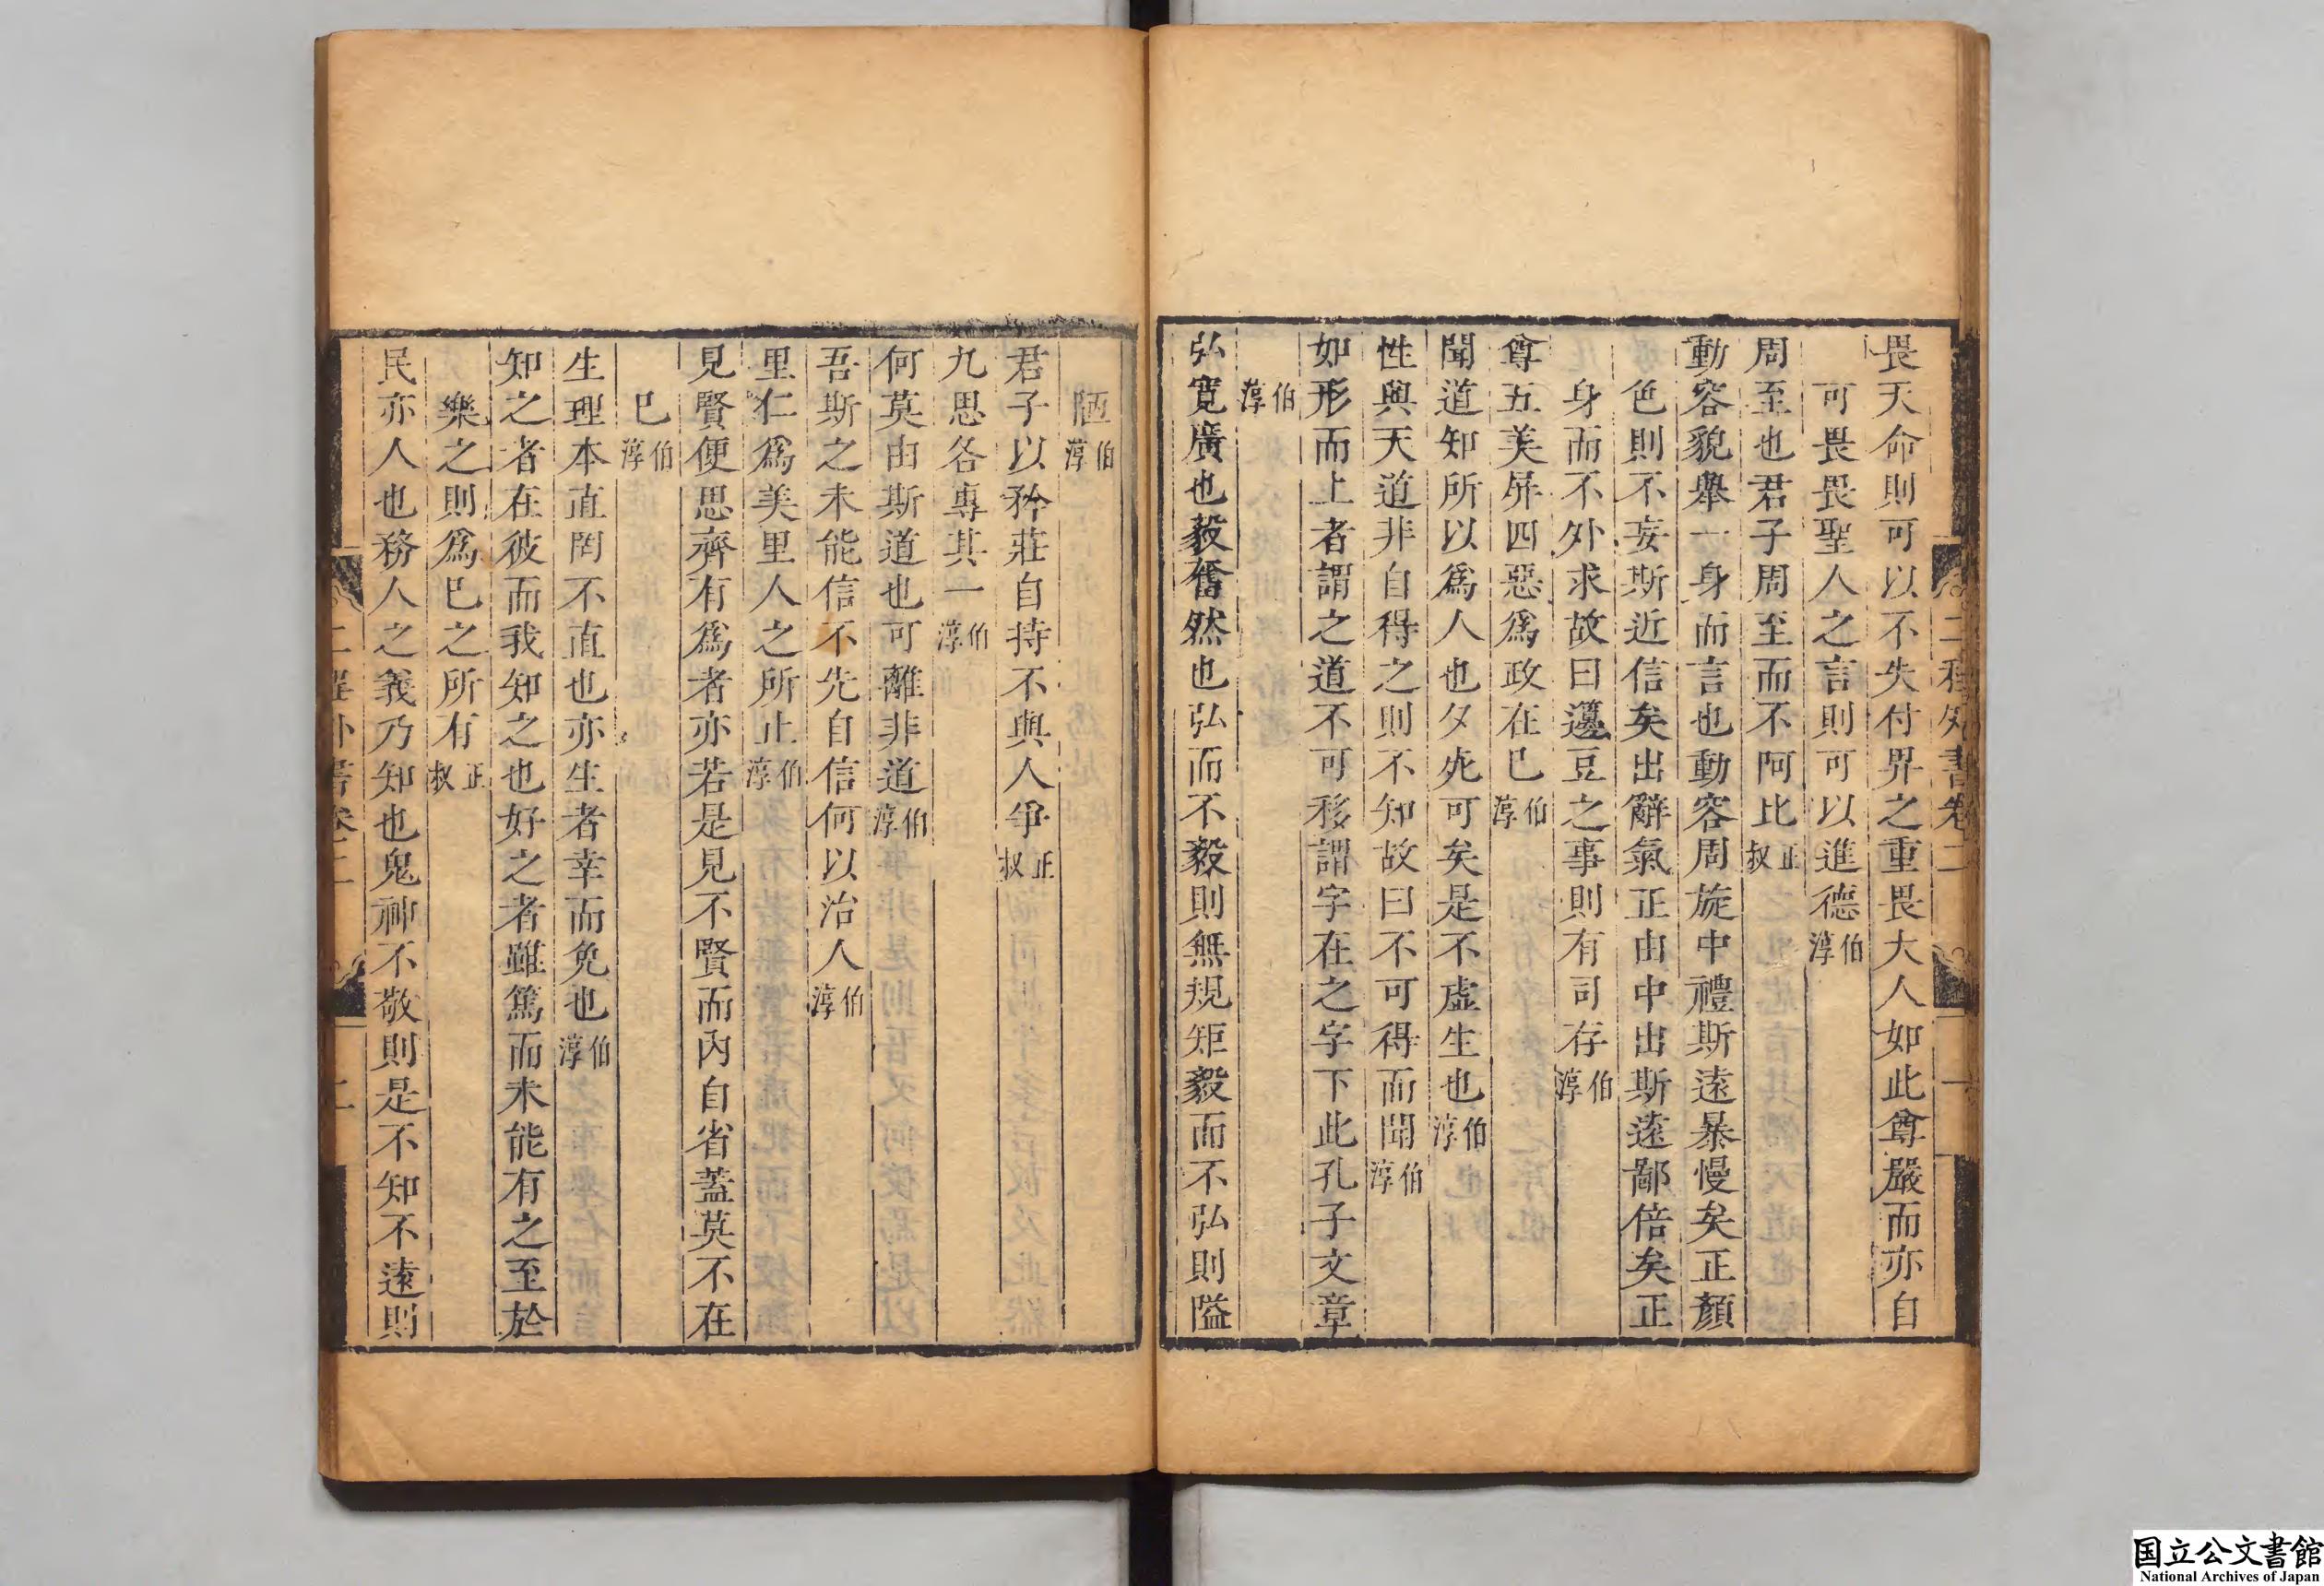 二程外書卷二 一
畏天命則可以不失付畀之重畏大人如此尊嚴而亦自
可畏畏聖人之言則可以進德伯淳
周至也君子周至而不阿比正叔
動容貌舉一身而言也動容周旋中禮斯遠暴慢矣正顏
色則不妄斯近信矣出辭氣正由中出斯遠鄙倍矣正
身而不外求故曰籩豆之事則有司存伯淳
尊五美屏四惡為政在已伯淳
聞道知所以爲人也夕死可矣是不虛生也伯淳
性與天道非自得之則不知故曰不可得而聞伯淳
如形而上者謂之道不可移謂字在之字下此孔子文章
伯淳
弘寬廣也毅奮然也弘而不毅則無規矩毅而不弘則隘
陋伯淳
君子以矜莊自持不與人爭正叔
九思各專其一伯淳
何莫由斯道也可離非道伯淳
吾斯之未能信不先自信何以治人伯淳
里仁爲美里人之所止伯淳
見賢便思齊有爲者亦若是見不賢而內自省蓋莫不在
已伯淳
生理本直罔不直也亦生者幸而免也伯淳
知之者在彼而我知之也好之者雖篤而未能有之至於
樂之則爲已之所有正叔
民亦人也務人之義乃知也鬼神不敬則是不知不遠則
二程外書卷二 二
国立公文書館
National Archives of Japan